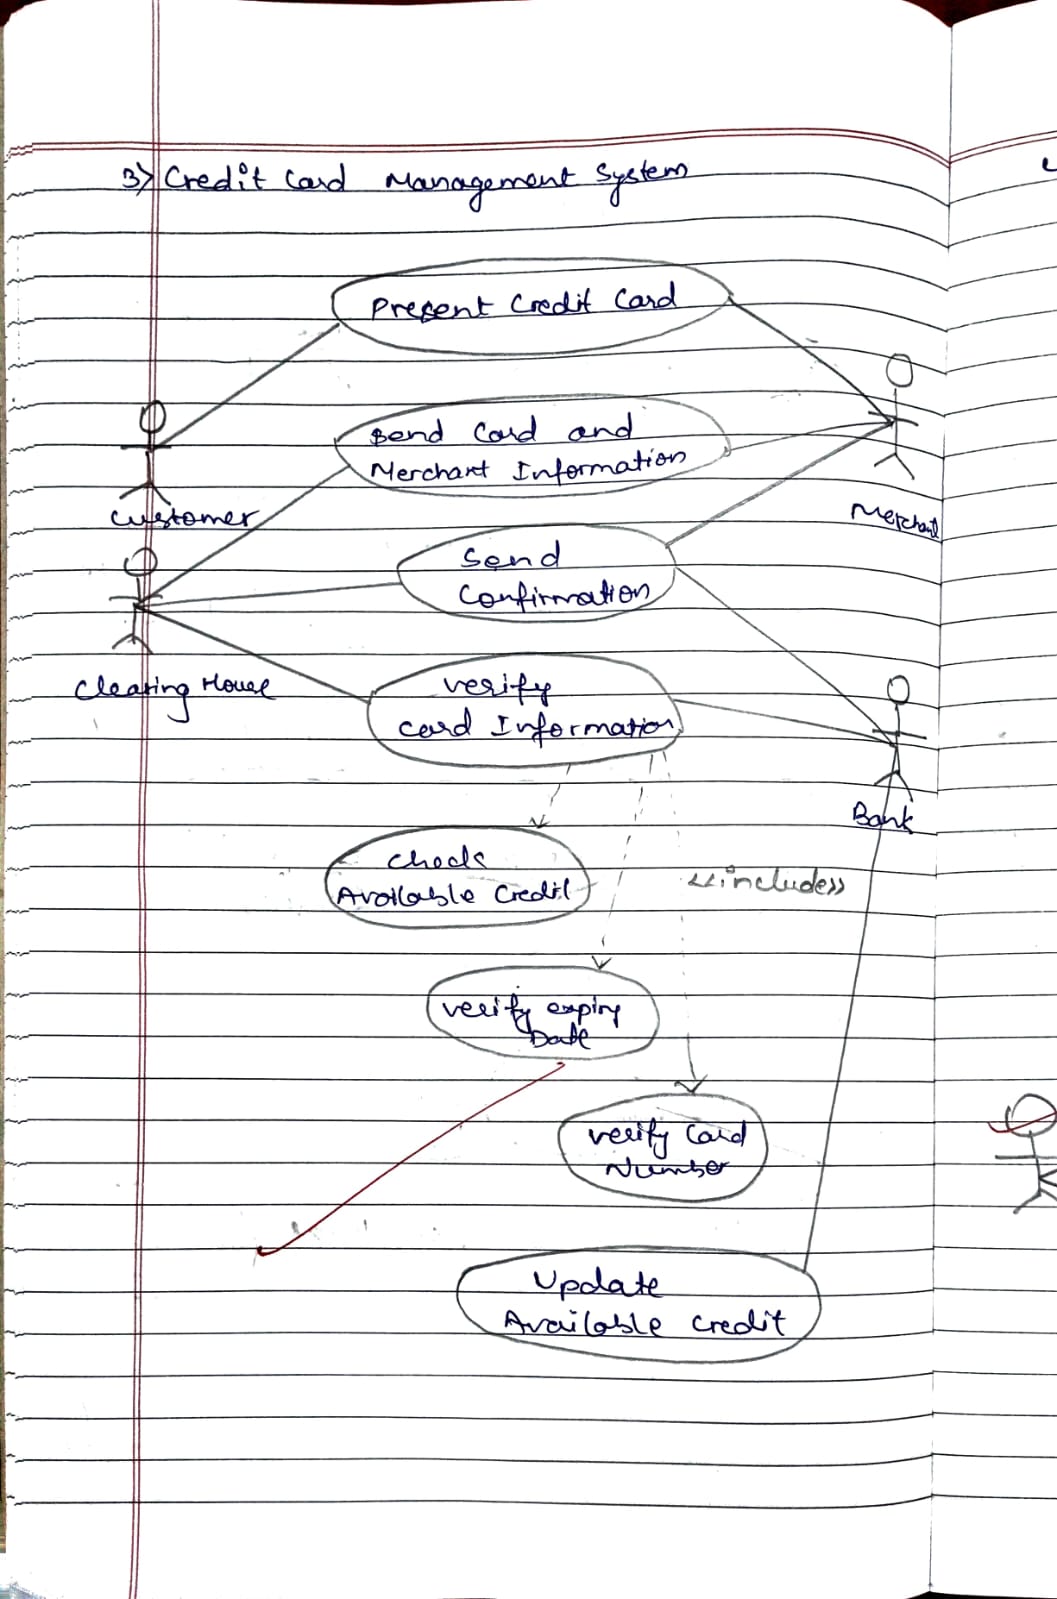 3) Credit Card Management System
Present Credit Card
Send Card and
Merchant Information
Customer
Merchant
Send
Confirmation
Clearing House
verify
card Information
Bank
check
Available Credit
<<includes>>
verify expiry
Date
verify Card
Number
Update
Available credit